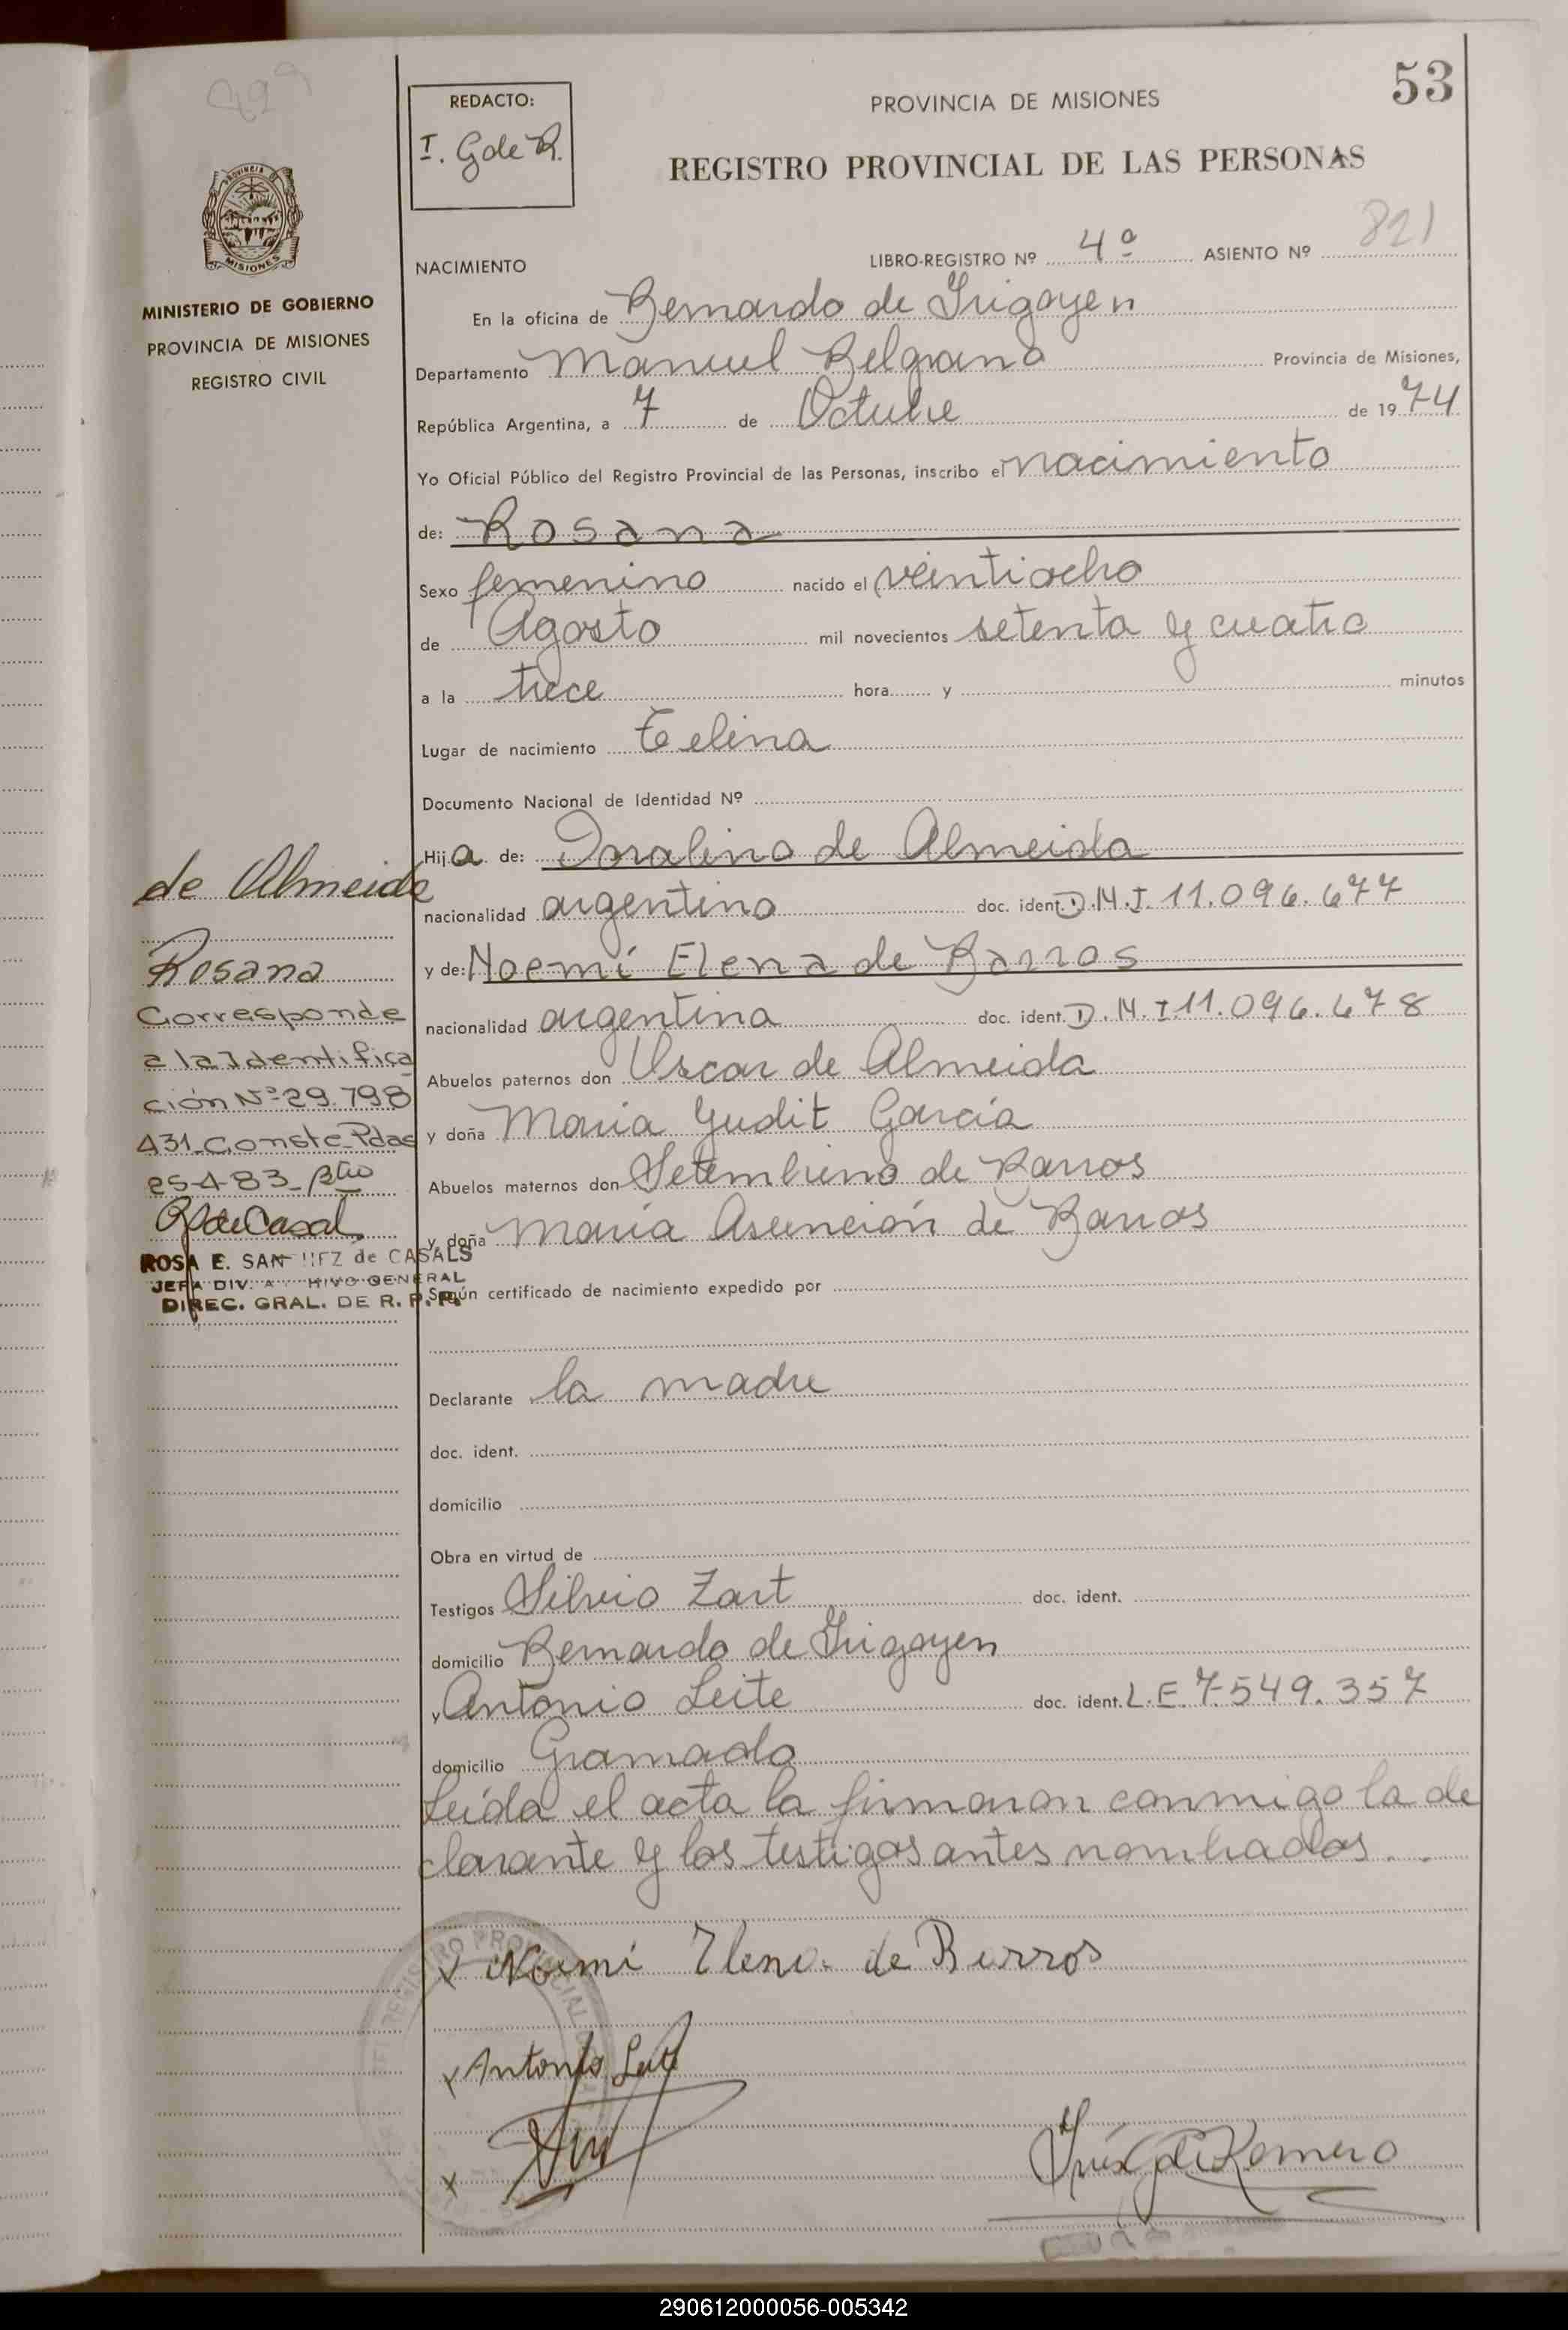 53
829
REDACTO:
I. G de R.
PROVINCIA DE MISIONES
REGISTRO PROVINCIAL DE LAS PERSONAS
PROVINCIA DE
MISIONES
MINISTERIO DE GOBIERNO
PROVINCIA DE MISIONES
REGISTRO CIVIL
NACIMIENTO LIBRO-REGISTRO Nº 4º ASIENTO Nº 821
En la oficina de Bernardo de Irigoyen
Departamento Manuel Belgrano Provincia de Misiones,
República Argentina, a 7 de Octubre de 1974
Yo Oficial Público del Registro Provincial de las Personas, inscribo el nacimiento
de: Rosana
Sexo femenino nacido el veintiocho
de Agosto mil novecientos setenta y cuatro
a la trece hora y minutos
Lugar de nacimiento
Documento Nacional de Identidad Nº
Hija de: Doralino de Almeida
nacionalidad argentino doc. ident. D.N.I. 11.096.677
y de: Noemí Elena de Barros
nacionalidad argentina doc. ident. D.N.I 11.096.678
Abuelos paternos don Oscar de Almeida
y doña Maria Yudit García
Abuelos maternos don Setembrino de Barros
y doña María Asunción de Barros
Según certificado de nacimiento expedido por
Declarante la madre
doc. ident.
domicilio
Obra en virtud de
Testigos Silvio Zart doc. ident.
domicilio Bernardo de Irigoyen
y Antonio Leite doc. ident. L.E. 7.549.357
domicilio Gramado
Leída el acta la firmaron conmigo la de
clarante y los testigos antes nombrados..
de Almeida
Rosana
Corresponde
a la Identifica
ción Nº 29.798
431_Conste_Pdas
25-4-83_
R de Casal
ROSA E. SANCHEZ de CASALS
JEFA DIV. ARCHIVO GENERAL
DIREC. GRAL. DE R. P. P.
x Noemí Elena de Barros
x Antonio Leite
x
Inés G de Romero
REGISTRO PROVINCIAL
290612000056-005342